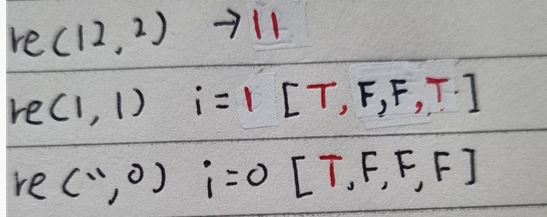 re(12,2) → 11
re(1,1) i=1 [T,F,F,T]
re('',0) i=0 [T,F,F,F]